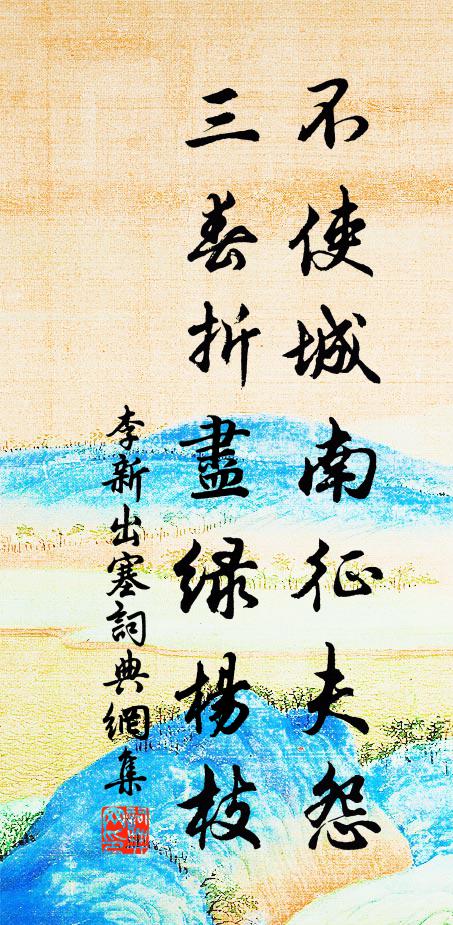 不使城南征夫怨
三春折盡綠楊枝
李新出塞詞典網集